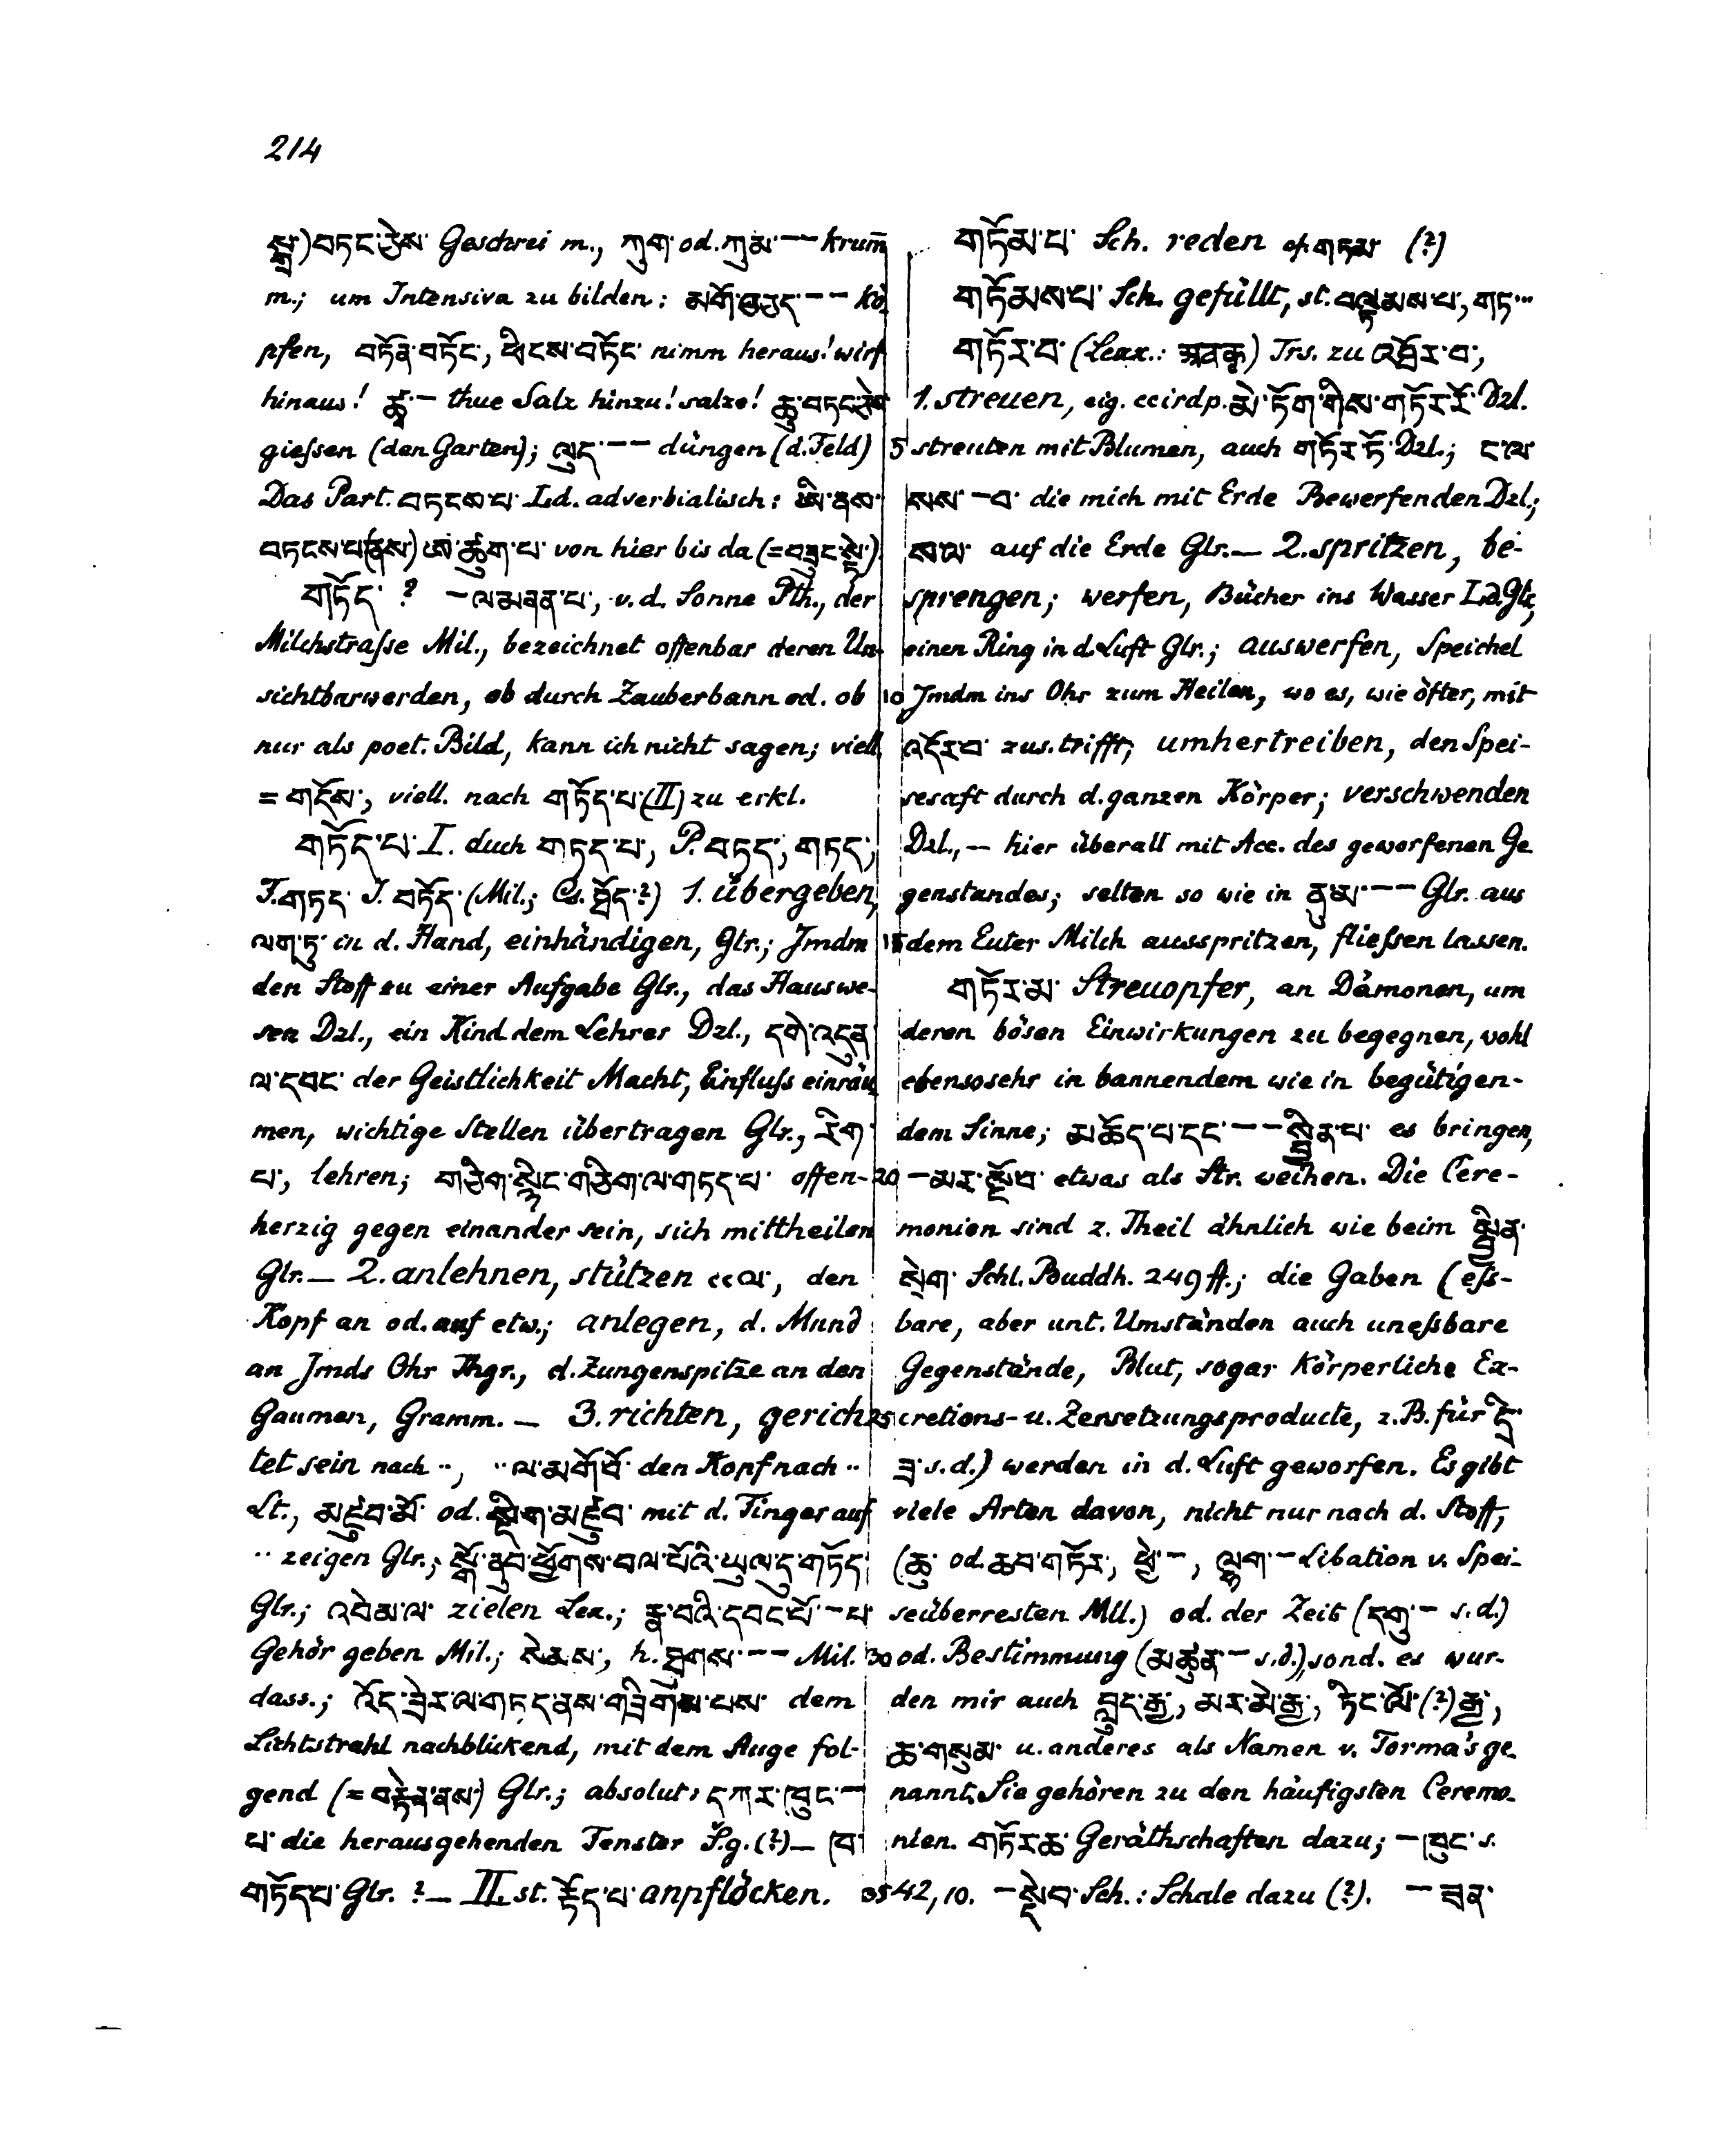 214
སྒྲ་) བཏང་ཅེས་ Geschrei m., ཀུག་ od. ཀུམ་ –– krum̄
m.; um Intensiva zu bilden: མགོ་བཅད་ –– kö-
pfen, བཏོན་བཏོང་, ཕྱིངས་བཏོང་ nimm heraus! wirf
hinaus! ཚྭ་ – thue Salz hinzu! salze! ཆུ་བཏང་ཅེས་
giessen (den Garten); ལུད་ –– düngen (d. Feld)
Das Part. བཏངས་པ་ Ld. adverbialisch: ཨི་ནས་
བཏངས་པ(ནས་) ཨ་ཚུག་པ་ von hier bis da (= བཟུང་སྟེ་)
གཏོད་ ? – ལ་མནན་པ་, v. d. Sonne Pth., der
Milchstrasse Mil., bezeichnet offenbar deren Un-
sichtbarwerden, ob durch Zauberbann od. ob
nur als poet. Bild, kann ich nicht sagen; viell.
= གདོས་, viell. nach གཏོད་པ་ (II) zu erkl.
གཏོད་པ་ I. auch གཏད་པ་, P. བཏད་, གཏད་,
F. གཏད་ J. བཏོད་ (Mil.; Cs. ཐོད་?) 1. übergeben,
ལག་ཏུ་ in d. Hand, einhändigen, Glr.; Jmdm
den Stoff zu einer Aufgabe Glr., das Hauswe-
sen Dzl., ein Kind dem Lehrer Dzl., དགེ་འདུན་
ལ་དབང་ der Geistlichkeit Macht, Einfluss einräu-
men, wichtige Stellen übertragen Glr., རིག་
པ་, lehren; གཅིག་སྙིང་གཅིག་ལ་གཏད་པ་ offen-
herzig gegen einander sein, sich mittheilen
Glr. – 2. anlehnen, stützen cc ལ་, den
Kopf an od. auf etw.; anlegen, d. Mund
an Jmds Ohr Thgr., d. Zungenspitze an den
Gaumen, Gramm. – 3. richten, gerich-
tet sein nach ··, ·· ལ་མགོ་བོ་ den Kopf nach ··
Lt., མཛུབ་མོ་ od. སྡིག་མཛུབ་ mit d. Finger auf
·· zeigen Glr.; སྒོ་ནུབ་ཕྱོགས་བལ་པོའི་ཡུལ་དུ་གཏོད་
Glr.; འབེམ་ལ་ zielen Lex.; རྣ་བའི་དབང་པོ་ – པ་
Gehör geben Mil.; སེམས་, h. ཐུགས་ –– Mil.
dass.; འོད་ཟེར་ལ་གཏད་ནས་གཟིགས་པས་ dem
Lichtstrahl nachblickend, mit dem Auge fol-
gend (= བརྟེན་ནས་) Glr.; absolut: དཀར་ཁུང་ –
པ་ die herausgehenden Fenster S̆.g. (?) – ཁ་
གཏོད་པ་ Glr. ? – II. st. རྟོད་པ་ anpflöcken.
གཏོམ་པ་ Sch. reden cf. གཏམ་ (?)
གཏོམས་པ་ Sch. gefüllt, st. བལྟམས་པ་, གཏ་···
གཏོར་བ་ (Lexx.: ) Trs. zu འཐོར་བ་,
1. streuen, eig. cc irdp. མེ་ཏོག་གིས་གཏོར་རོ་ Dzl.
5 streuten mit Blumen, auch གཏོར་ཏོ་ Dzl.; ང་ལ་
སས་ – བ་ die mich mit Erde Bewerfenden Dzl.;
ས་ལ་ auf die Erde Glr. – 2. spritzen, be-
sprengen; werfen, Bücher ins Wasser Ld. Glr.,
einen Ring in d. Luft Glr.; auswerfen, Speichel
10 Jmdm ins Ohr zum Heilen, wo es, wie öfter, mit
འདོར་བ་ zus. trifft; umhertreiben, den Spei-
sesaft durch d. ganzen Körper; verschwenden
Dzl., – hier überall mit Acc. des geworfenen Ge-
genstandes; selten so wie in ནུ་མ་ –– Glr. aus
15 dem Euter Milch ausspritzen, fliessen lassen.
གཏོར་མ་ Streuopfer, an Dämonen, um
deren bösen Einwirkungen zu begegnen, wohl
ebensosehr in bannendem wie in begütigen-
dem Sinne; མཆོད་པ་དང་ –– སྦྱིན་པ་ es bringen,
20 – མར་སྔོ་བ་ etwas als Str. weihen. Die Cere-
monien sind z. Theil ähnlich wie beim སྦྱིན་
སྲེག་ Schl. Buddh. 249 ff.; die Gaben (ess-
bare, aber unt. Umständen auch unessbare
Gegenstände, Blut, sogar körperliche Ex-
25 cretions- u. Zersetzungsproducte, z. B. für དྲི་
ཟ་ s. d.) werden in d. Luft geworfen. Es gibt
viele Arten davon, nicht nur nach d. Stoff,
(ཆུ་ od. ཆབ་གཏོར་, ཕྱེ་ –, ལྷག་ – Libation v. Spei-
seüberresten Mll.) od. der Zeit (དགུ་ – s. d.)
30 od. Bestimmung (མཚུན་ – s. d.), sond. es wur-
den mir auch བླུད་རྒྱ་, མར་མེ་རྒྱ་, ཏིང་ལོ་ (?) རྒྱ་,
ཆ་གསུམ་ u. anderes als Namen v. Torma's ge-
nannt. Sie gehören zu den häufigsten Ceremo-
nien. གཏོར་ཆ་ Geräthschaften dazu; – ཁུང་ s.
35 42, 10. – སྡེབ་ Sch.: Schale dazu (?). – ཟན་